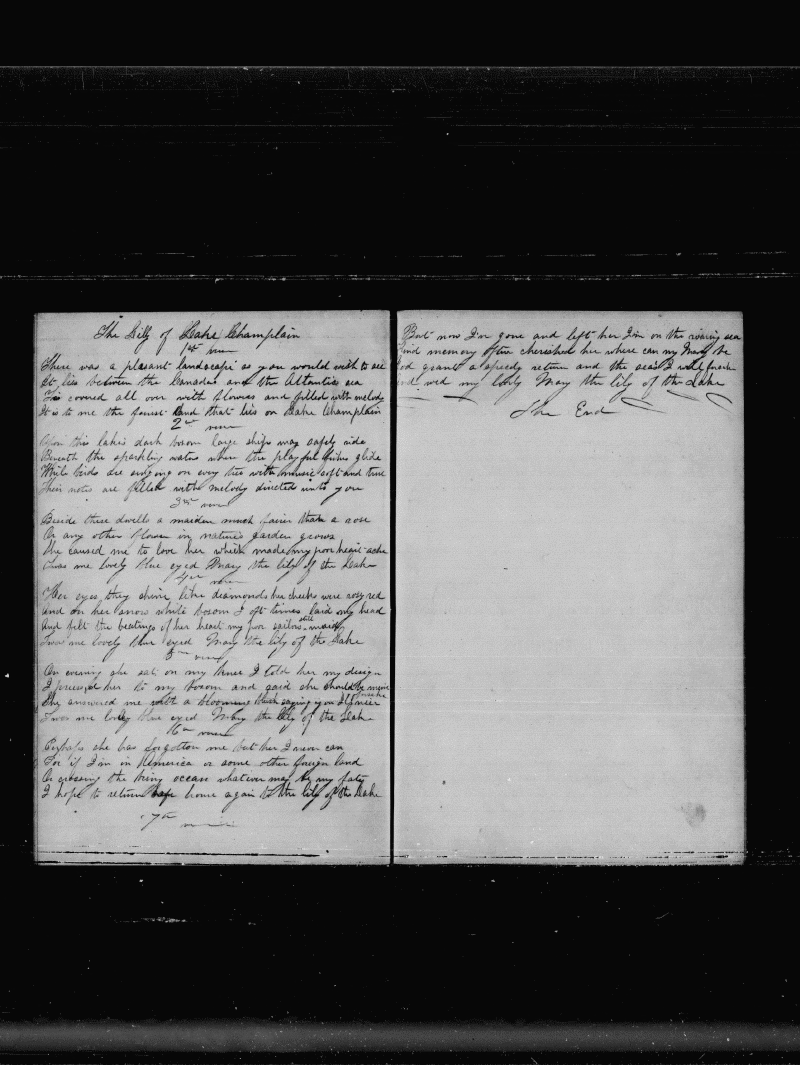 The Lilly of Lake Champlain
1st verse
There was a pleasant landscape as you would wish to see
It lies between the Canadas and the Atlantic sea
Tis covered all over with flowers and filled with melody
It is to me the fairest land that lies on Lake Champlain
2nd verse
Upon this lakes dark bosom large ships may safely ride
Beneath the sparkling water where the playful fishes glide
While birds are singing on every tree with music soft and true
Their notes are filled with melody directed unto you
3rd verse
Beside there dwells a maiden much fairer than a rose
Or any other flower in natures garden grows
She caused me to love her which made my poor heart ache
Twas me lovly blue eyed Mary the lily of the Lake
4th verse
Her eyes they shine like diamonds her cheeks were rosy red
And on her snow white bosom I oft times laid my head
And felt the beatings of her heart my poor sailors still
Twas me lovely blue eyed Mary the lily of the Lake
5th verse
On evening she sat on my knee I told her my design
I pressed her to my bosom and said she should be mine
She answered me with a blooming blush saying you I'll never forsake
Twas me lovly blue eyed Mary the lily of the Lake
6th verse
Perhaps she has forgotten me but her I never can
For if I'm in America or some other foreign land
Or crossing the briny ocean whatever may be my fate
I hope to return home again to the lily of the Lake
7th verse
But now I'm gone and left her I'm on the roaring sea
kind memory often cherished her where can my Mary be
God grant a speedy return and the seas I will forsake
And wed my lovly Mary the lily of the Lake
The End